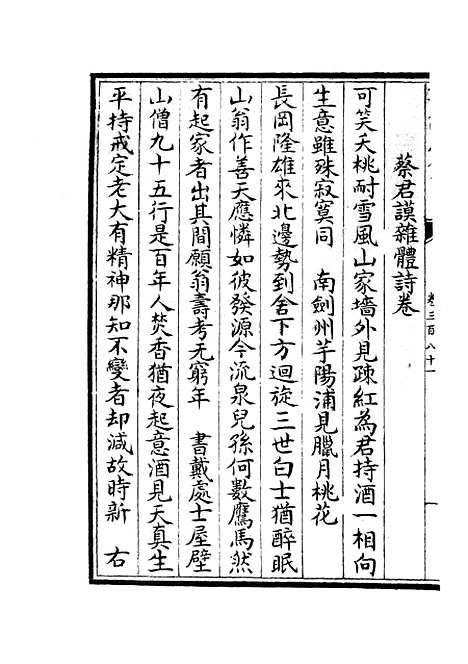 卷三百八十一
蔡君謨雜體詩卷
可笑夭桃耐雪風山家墻外見疎紅為君持酒一相向
生意雖殊寂寞同　南劍州芋陽浦見臘月桃花
長岡隆雄來北邊勢到舍下方迴旋三世白士猶醉眠
山翁作善天應憐如彼發源今流泉兒孫何數鷹馬然
有起家者出其間願翁壽考无窮年　書戴處士屋壁
山僧九十五行是百年人焚香猶夜起意酒見天真生
平持戒定老大有精神那知不變者却減故時新　右